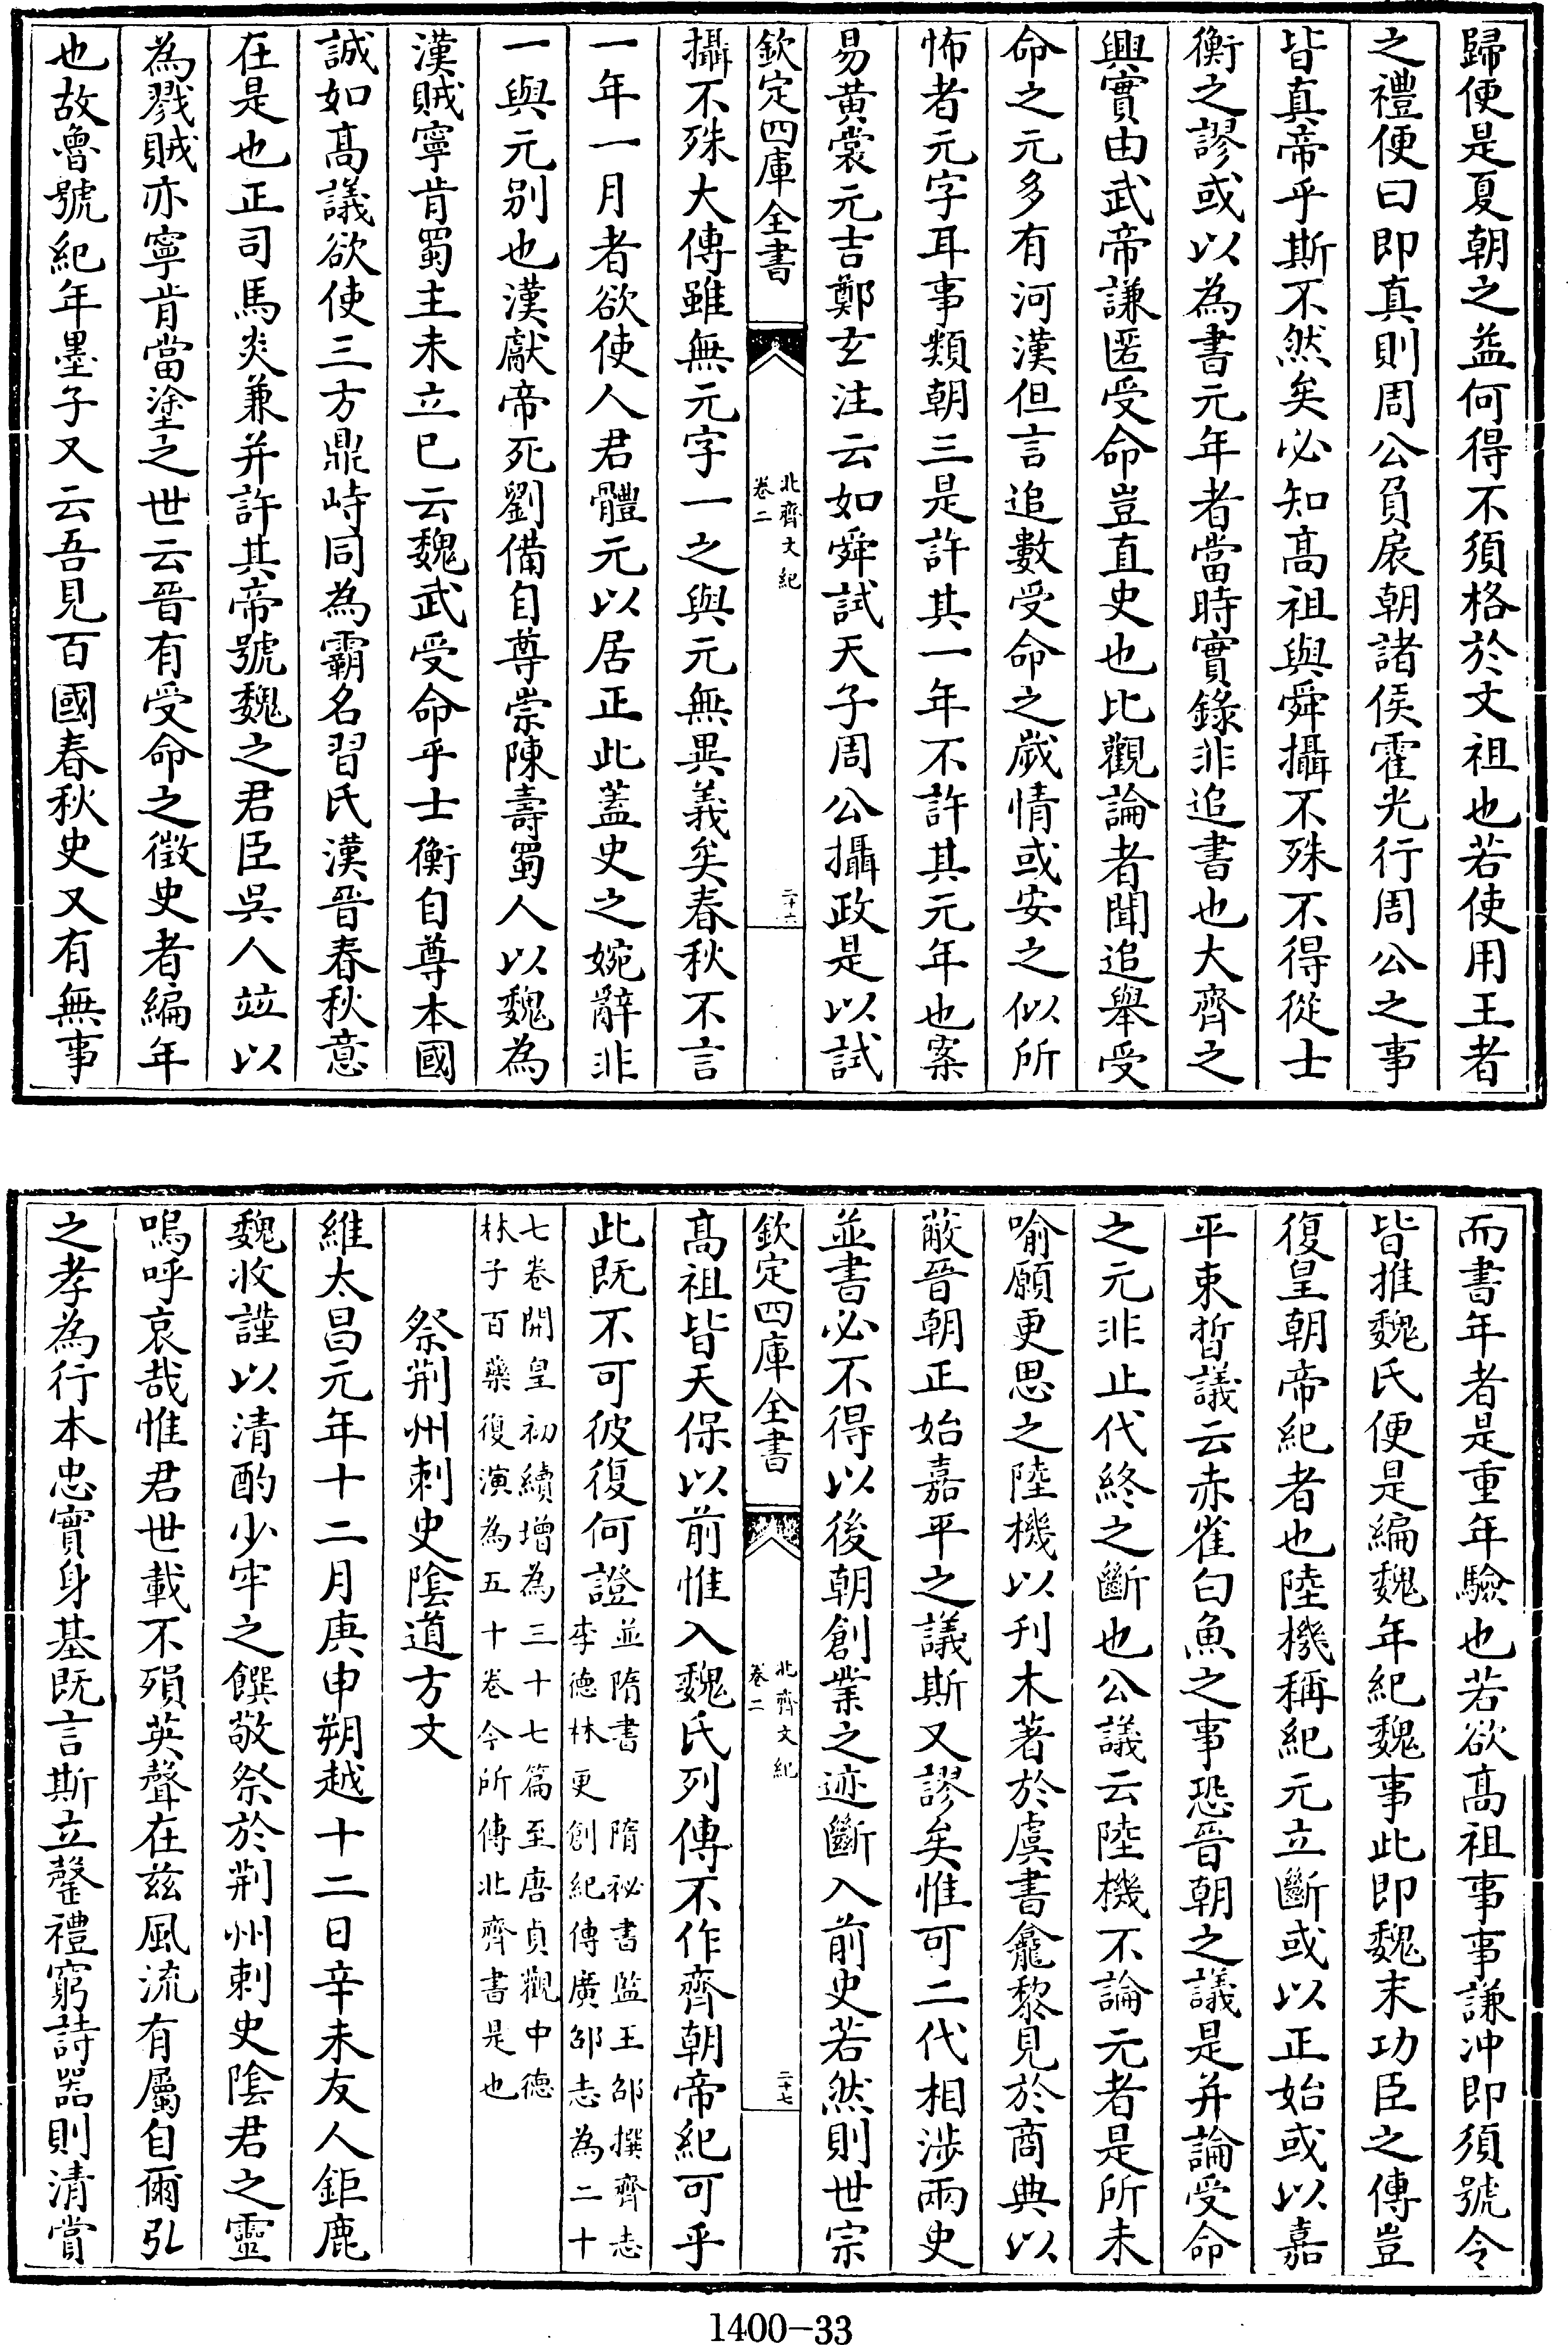 歸便是夏朝之益何得不須格於文祖也若使用王者
之禮便曰即真則周公負扆朝諸侯霍光行周公之事
皆真帝乎斯不然矣必知髙祖與舜攝不殊不得從士
衡之謬或以為書元年者當時實錄非追書也大齊之
興實由武帝謙匿受命豈直史也比觀論者聞追舉受
命之元多有河漢但言追數受命之歲情或安之似所
怖者元字耳事類朝三是許其一年不許其元年也案
易黄裳元吉鄭玄注云如舜試天子周公攝政是以試
欽定四庫全書
北齊文紀
卷二
二十六
攝不殊大傳雖無元字一之與元無異義矣春秋不言
一年一月者欲使人君體元以居正此蓋史之婉辭非
一與元别也漢獻帝死劉備自尊崇陳壽蜀人以魏為
漢賊寧肯蜀主未立已云魏武受命乎士衡自尊本國
誠如髙議欲使三方鼎峙同為霸名習氏漢晉春秋意
在是也正司馬炎兼并許其帝號魏之君臣吳人竝以
為戮賊亦寧肯當塗之世云晉有受命之徵史者編年
也故魯號紀年墨子又云吾見百國春秋史又有無事
而書年者是重年驗也若欲髙祖事事謙沖即須號令
皆推魏氏便是編魏年紀魏事此即魏末功臣之傳豈
復皇朝帝紀者也陸機稱紀元立斷或以正始或以嘉
平束晳議云赤雀白魚之事恐晉朝之議是并論受命
之元非止代終之斷也公議云陸機不論元者是所未
喻願更思之陸機以刋木著於虞書龕黎見於商典以
蔽晉朝正始嘉平之議斯又謬矣惟可二代相涉兩史
並書必不得以後朝創業之迹斷入前史若然則世宗
欽定四庫全書
北齊文紀
卷二
二十七
髙祖皆天保以前惟入魏氏列傳不作齊朝帝紀可乎
此既不可彼復何證並隋書 隋祕書監王邵撰齊志
李德林更創紀傳廣邵志為二十
七卷開皇初續增為三十七篇至唐貞觀中德
林子百藥復演為五十卷今所傳北齊書是也
祭荆州刺史陰道方文
維太昌元年十二月庚申朔越十二日辛未友人鉅鹿
魏收謹以清酌少牢之饌敬祭於荆州刺史陰君之靈
嗚呼哀哉惟君世載不殞英聲在兹風流有屬自爾弘
之孝為行本忠實身基既言斯立罄禮窮詩器則清賞
1400-33